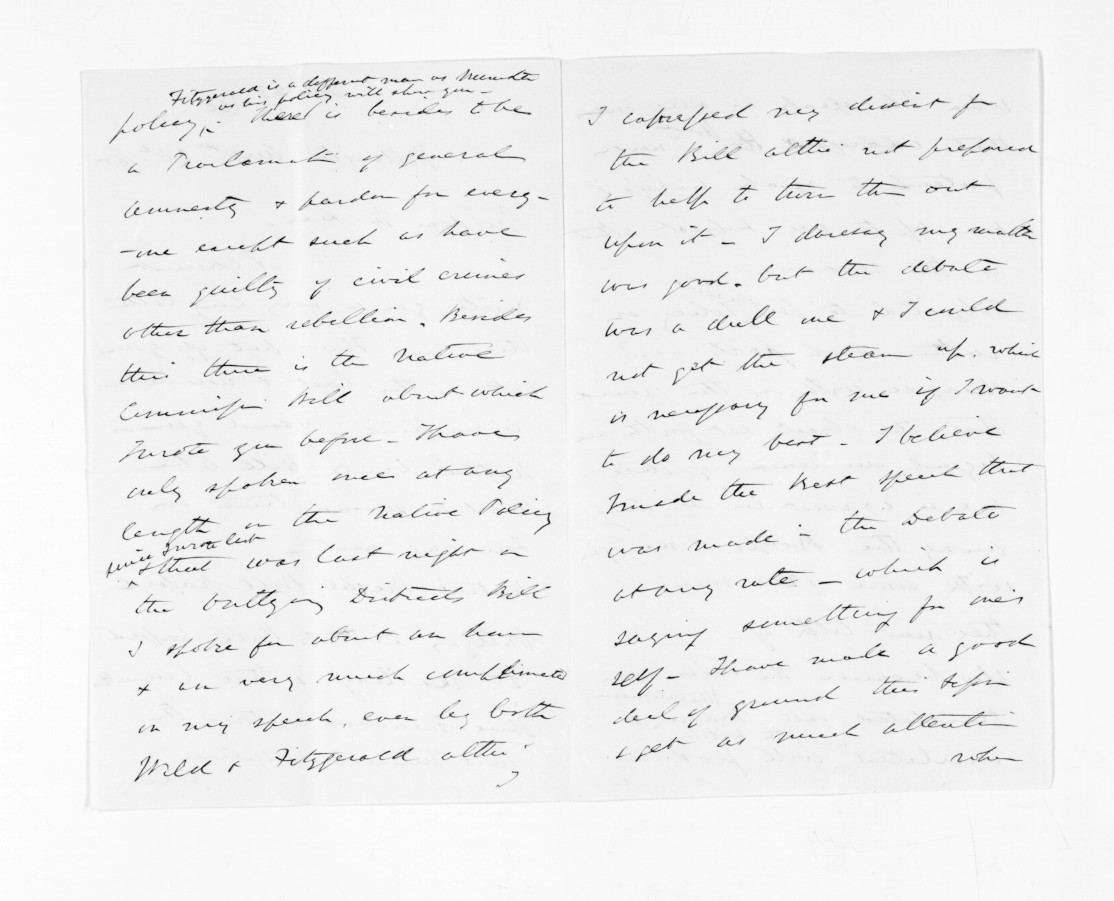 Fitzgerald is a different man as
as his policy will show you -
policy, - There is besides to be
a Proclamatn of general
Amnesty & pardon for every-
-one except such as have
been guilty of civil crimes
other than rebellion. Besides
this there is the Native
Commissn Bill about which
I wrote you before - I have
only spoken once at any
length on the Native Policy
since I wrote last
& that was last night on
the Outlying Districts Bill
I spoke for about an hour
& am very much complimented
on my speech, even by both
Weld & Fitzgerald altho'
I
I expressed my dissent fm
the Bill altho' not prepared
to help to turn them out
upon it - I daresay my matter
was good. but the debate
was a dull one & I could
not get the steam up. which
is necessary for me if I want
to do my best - I believe
I made the best speech that
was made in the Debate
at any rate - which is
saying something for one's
self - I have made a good
deal of ground this Sessn
& get as much attentn
when